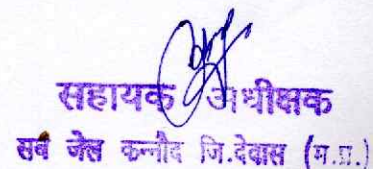 सहायक अधीक्षक
सब जेल कन्नौद जि.देवास (म.प्र.)